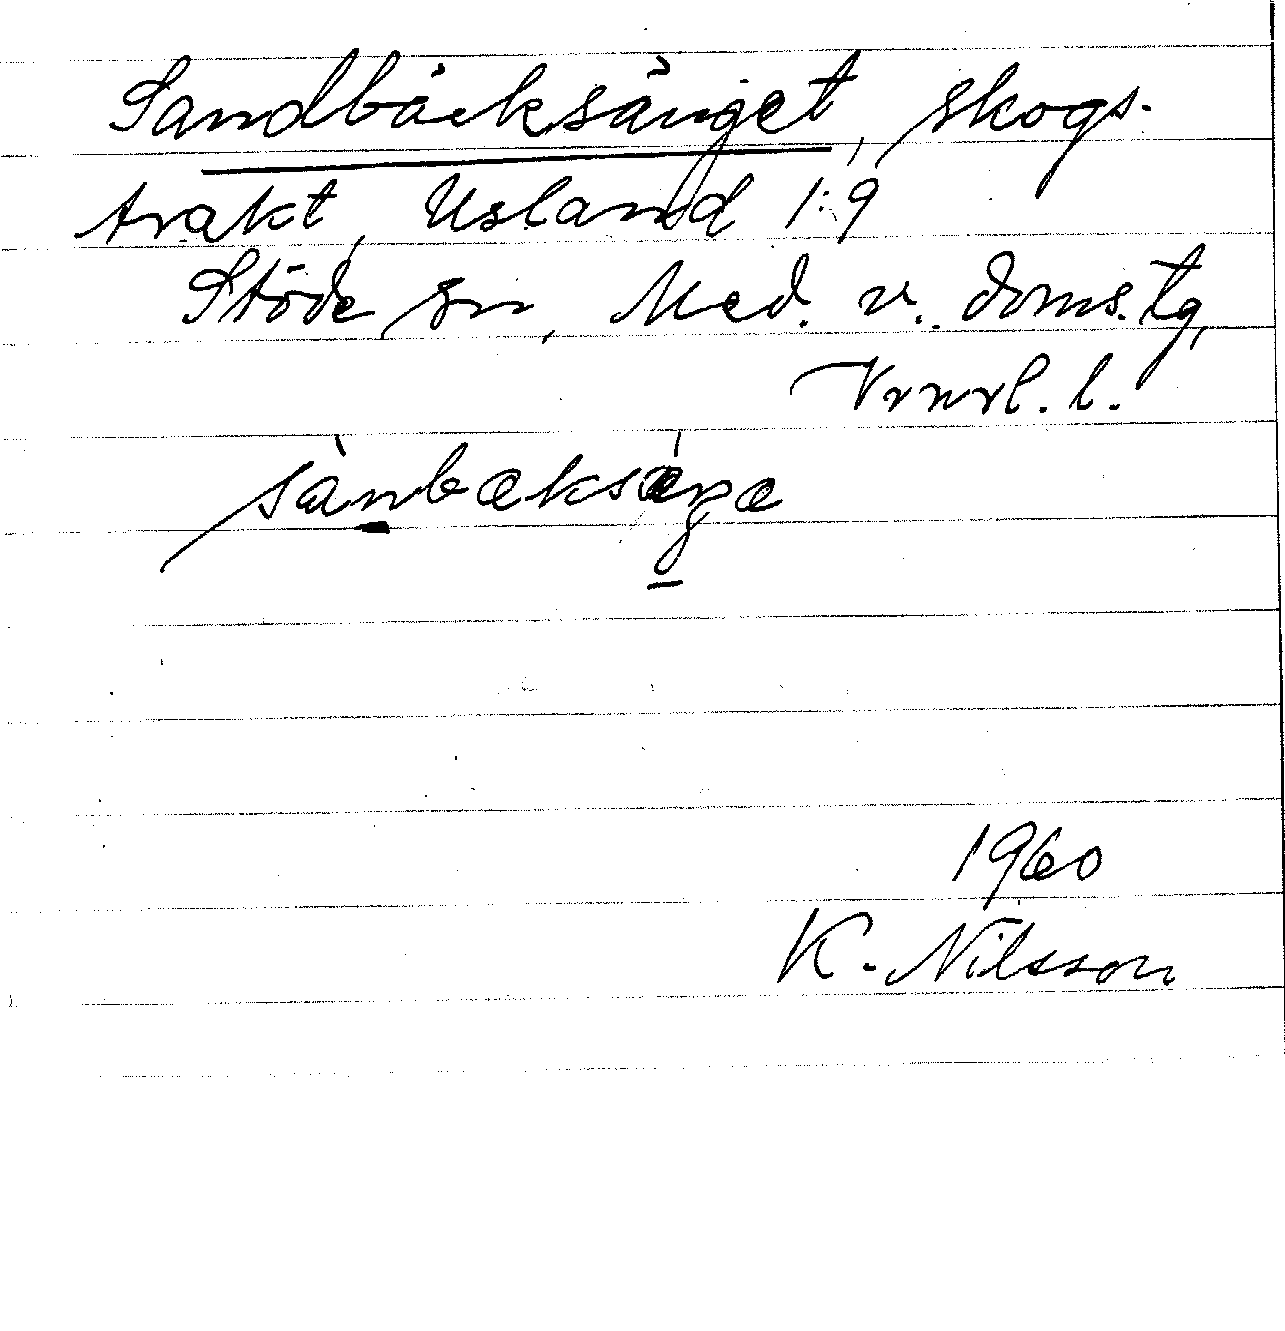 Sandbäcksänget, skogs-
trakt, Usland 1:9
Stöde sn, Med. v. doms. tg,
Vrnrl. l.
sànbæksǽŋæ
1960
K. Nilsson